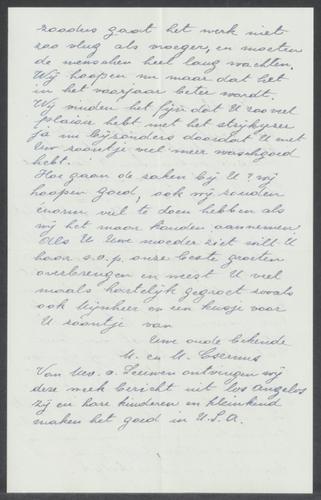 zoodus gaat het werk niet
zoo vlug als vroeger, en moeten
de menschen heel lang wachten.
Wij hoopen nu maar dat het
in het voorjaar beter wordt.
Wij vinden het fijn dat U zoo veel
plaisir hebt met het strijkijzer
ja nu bijzonders doordat U met
Uw zoontje veel meer waschgoed
hebt.
Hoe gaan de zaken bij U? wij
hoopen goed, ook wij zouden
enorm veel te doen hebben als
wij het maar konden aannemen.
Als U Uwe moeder ziet wilt U
haar s.v.p. onze beste groeten
overbrengen en weest U veel
maals hartelijk gegroet zooals
ook Mijnheer en een kusje voor
U zoontje van
Uwe oude bekende
M. en M.
Van Mw. v. Leeuwen ontvingen wij
deze week bericht uit Los Angelos
zij en hare kinderen en kleinkind
maken het goed in U.S.A.